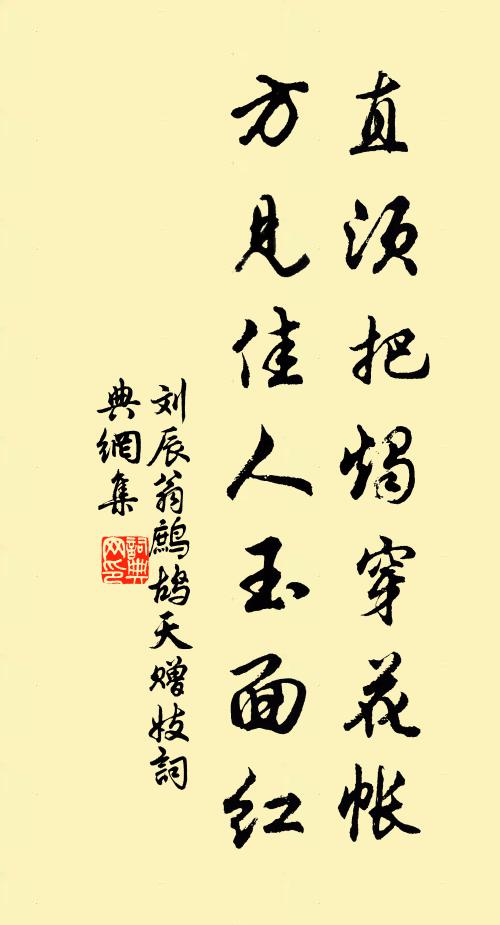 直须把烛穿花帐
方见佳人玉面红
刘辰翁鹧鸪天赠妓詞
典網集
詞典
网印